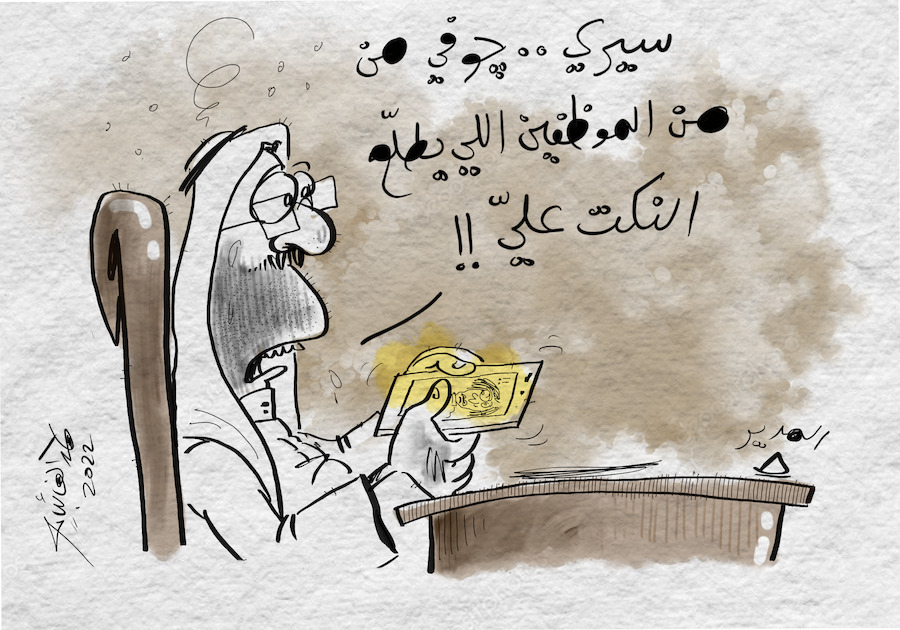 سيري .. چوفي من
من الموظفين اللي يطلّع
النكت عليّ !!
المدير
2022